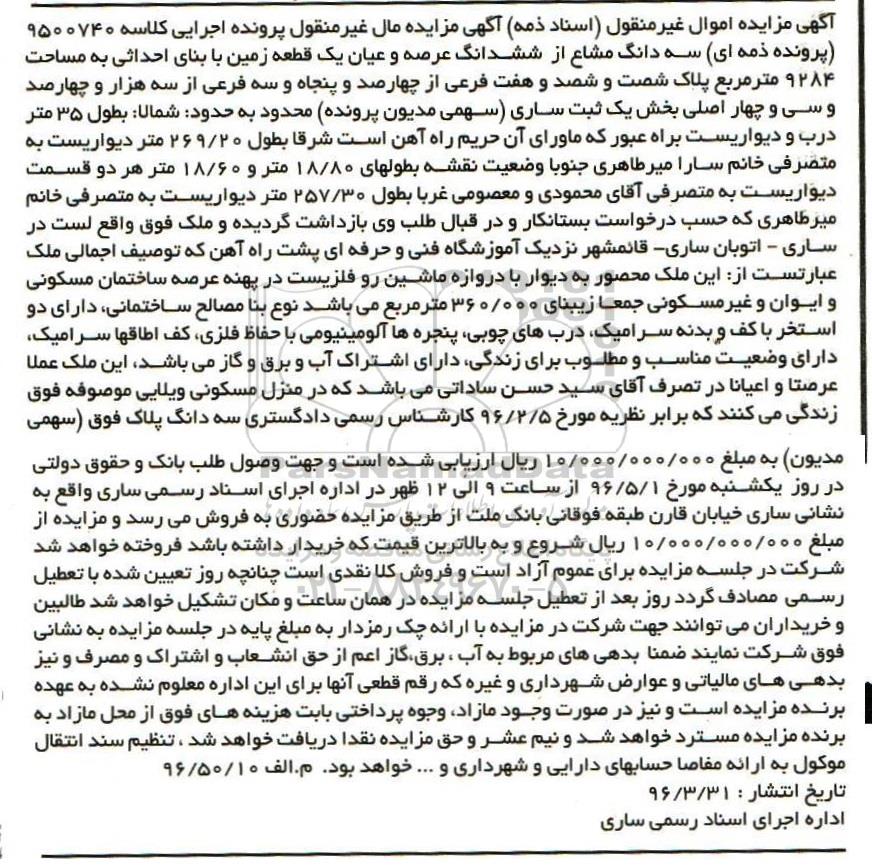 آگهی مزایده اموال غیرمنقول (اسناد ذمه) آگهی مزایده مال غیرمنقول پرونده اجرایی کلاسه ۹۵۰۰۷۴۰
(پرونده ذمه ای) سه دانگ مشاع از ششدانگ عرصه و عیان یک قطعه زمین با بنای احداثی به مساحت
۹۲۸۴ مترمربع پلاک شصت و شصد و هفت فرعی از چهارصد و پنجاه و سه فرعی از سه هزار و چهارصد
و سی و چهار اصلی بخش یک ثبت ساری (سهمی مدیون پرونده) محدود به حدود: شمالا: بطول ۳۵ متر
درب و دیواریست براه عبور که ماورای آن حریم راه آهن است شرقا بطول ۲۶۹/۲۰ متر دیواریست به
متصرفی خانم سارا میرطاهری جنوبا وضعیت نقشه بطولهای ۱۸/۸۰ متر و ۱۸/۶۰ متر هر دو قسمت
دیواریست به متصرفی آقای محمودی و معصومی غربا بطول ۲۵۷/۳۰ متر دیواریست به متصرفی خانم
میرطاهری که حسب درخواست بستانکار و در قبال طلب وی بازداشت گردیده و ملک فوق واقع لست در
ساری - اتوبان ساری- قائمشهر نزدیک آموزشگاه فنی و حرفه ای پشت راه آهن که توصیف اجمالی ملک
عبارتست از: این ملک محصور به دیوار با دروازه ماشین رو فلزیست در پهنه عرصه ساختمان مسکونی
و ایوان و غیرمسکونی جمعا زیبنای ۳۶۰/۰۰۰ مترمربع می باشد نوع بنا مصالح ساختمانی، دارای دو
استخر با کف و بدنه سرامیک، درب های چوبی، پنجره ها آلومینیومی با حفاظ فلزی، کف اطاقها سرامیک،
دارای وضعیت مناسب و مطلوب برای زندگی، دارای اشتراک آب و برق و گاز می باشد، این ملک عملا
عرصتا و اعیانا در تصرف آقای سید حسن ساداتی می باشد که در منزل مسکونی ویلایی موصوفه فوق
زندگی می کنند که برابر نظریه مورخ ۹۶/۲/۵ کارشناس رسمی دادگستری سه دانگ پلاک فوق (سهمی
مدیون) به مبلغ ۱۰/۰۰۰/۰۰۰/۰۰۰ ریال ارزیابی شده است و جهت وصول طلب بانک و حقوق دولتی
در روز یکشنبه مورخ ۹۶/۵/۱ از ساعت ۹ الی ۱۲ ظهر در اداره اجرای اسناد رسمی ساری واقع به
نشانی ساری خیابان قارن طبقه فوقانی بانک ملت از طریق مزایده حضوری به فروش می رسد و مزایده از
مبلغ ۱۰/۰۰۰/۰۰۰/۰۰۰ ریال شروع و به بالاترین قیمت که خریدار داشته باشد فروخته خواهد شد
شرکت در جلسه مزایده برای عموم آزاد است و فروش کلا نقدی است چنانچه روز تعیین شده با تعطیل
رسمی مصادف گردد روز بعد از تعطیل جلسه مزایده در همان ساعت و مکان تشکیل خواهد شد طالبین
و خریداران می توانند جهت شرکت در مزایده با ارائه چک رمزدار به مبلغ پایه در جلسه مزایده به نشانی
فوق شرکت نمایند ضمنا بدهی های مربوط به آب، برق،گاز اعم از حق انشعاب و اشتراک و مصرف و نیز
بدهی های مالیاتی و عوارض شهرداری و غیره که رقم قطعی آنها برای این اداره معلوم نشده به عهده
برنده مزایده است و نیز در صورت وجود مازاد، وجوه پرداختی بابت هزینه های فوق از محل مازاد به
برنده مزایده مسترد خواهد شد و نیم عشر و حق مزایده نقدا دریافت خواهد شد، تنظیم سند انتقال
موکول به ارائه مفاصا حسابهای دارایی و شهرداری و ... خواهد بود. م.الف ۹۶/۵۰/۱۰
تاریخ انتشار : ۹۶/۳/۳۱
اداره اجرای اسناد رسمی ساری
ParsNamadData
۰۲۱-۸۸۳۴۹۶۷۰-۵